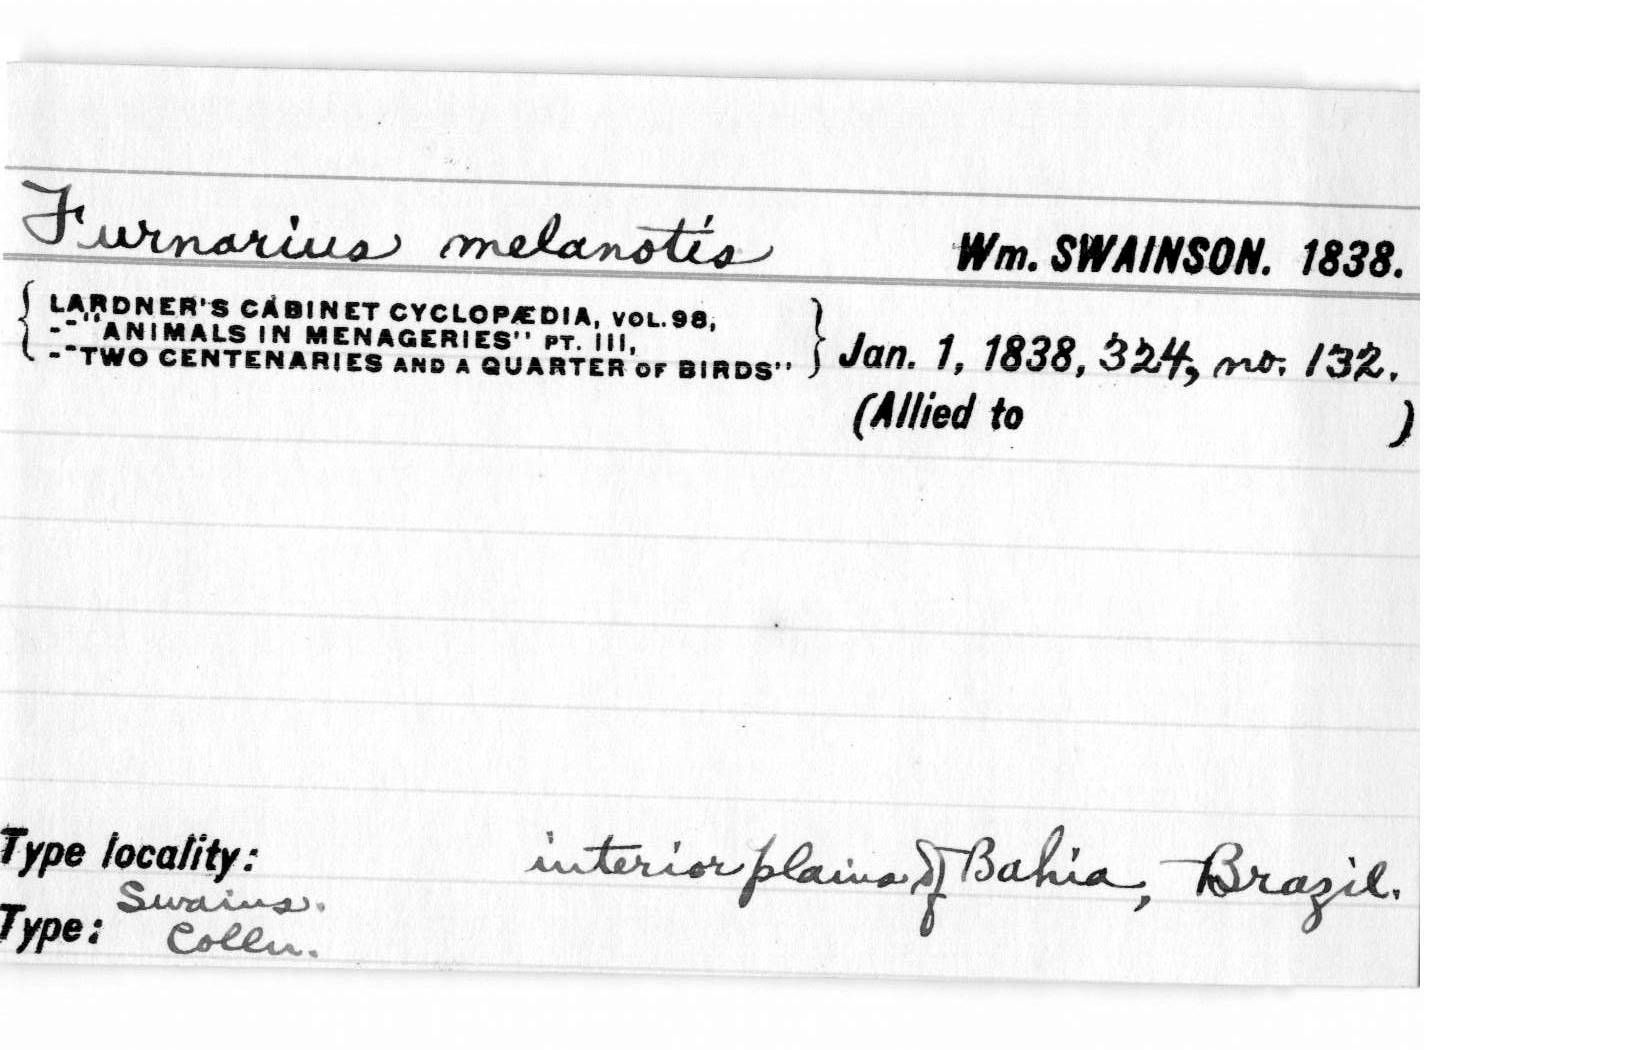 Furnarius melanotis Wm. SWAINSON. 1838.
LARDNER'S CABINET CYCLOPÆDIA, VOL. 98,
--"ANIMALS IN MENAGERIES" PT. III,
--"TWO CENTENARIES AND A QUARTER OF BIRDS" Jan. 1, 1838, 324, no. 132.
(Allied to )
Type locality: interior plains of Bahia, Brazil.
Swains.
Type: Colln.